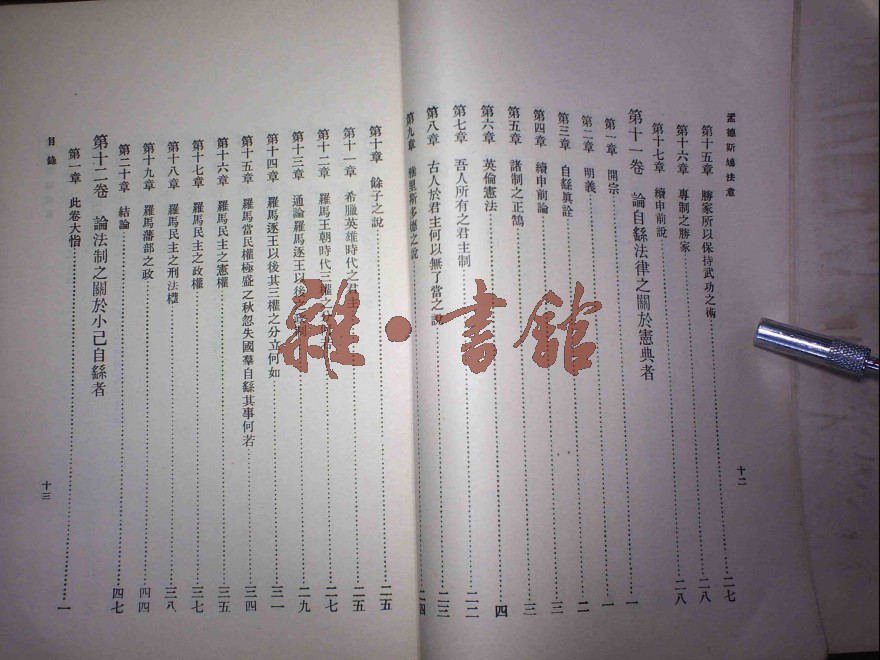 孟德斯鳩法意
第十五章 勝家所以保持武功之術 二七
第十六章 專制之勝家 二八
第十七章 續申前說 二八
第十一卷 論自繇法律之關於憲典者 一
第一章 開宗 一
第二章 明義 二
第三章 自繇眞詮 三
第四章 續申前論 三
第五章 諸制之正鵠 四
第六章 英倫憲法 四
第七章 吾人所有之君主制 二二
第八章 古人於君主何以無了當之說 二三
第九章 雅里斯多德之說 二四
十二
第十章 餘子之說 二五
第十一章 希臘英雄時代之君主 二五
第十二章 羅馬王朝時代三權之分 二七
第十三章 通論羅馬逐王以後之 二九
第十四章 羅馬逐王以後其三權之分立何如 三一
第十五章 羅馬當民權極盛之秋忽失國羣自繇其事何若 三四
第十六章 羅馬民主之憲權 三五
第十七章 羅馬民主之政權 三七
第十八章 羅馬民主之刑法權 三八
第十九章 羅馬藩部之政 四四
第二十章 結論 四七
第十二卷 論法制之關於小己自繇者
第一章 此卷大恉 一
目錄
十三
雜·書館